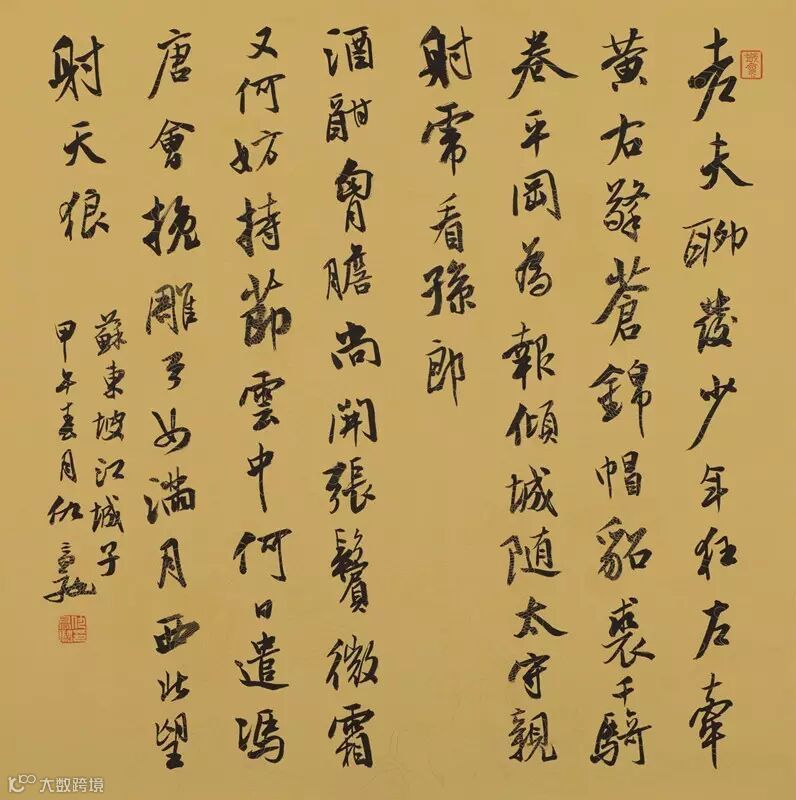 老夫聊發少年狂左牽
黃右擎蒼錦帽貂裘千騎
卷平岡為報傾城随太守親
射虎看孫郎
酒酣胷膽尚開張鬢微霜
又何妨持節雲中何日遣馮
唐會挽雕弓如滿月西北望
射天狼
蘇東坡江城子
甲午春月仇高驰
大数跨境